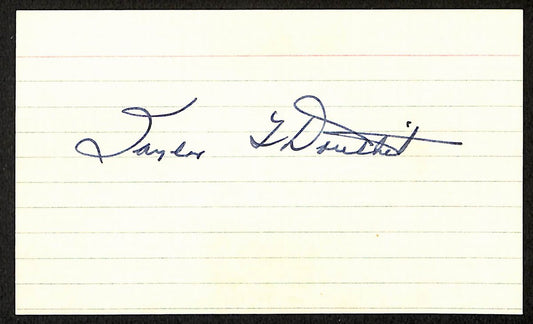 Taylor L Douthit